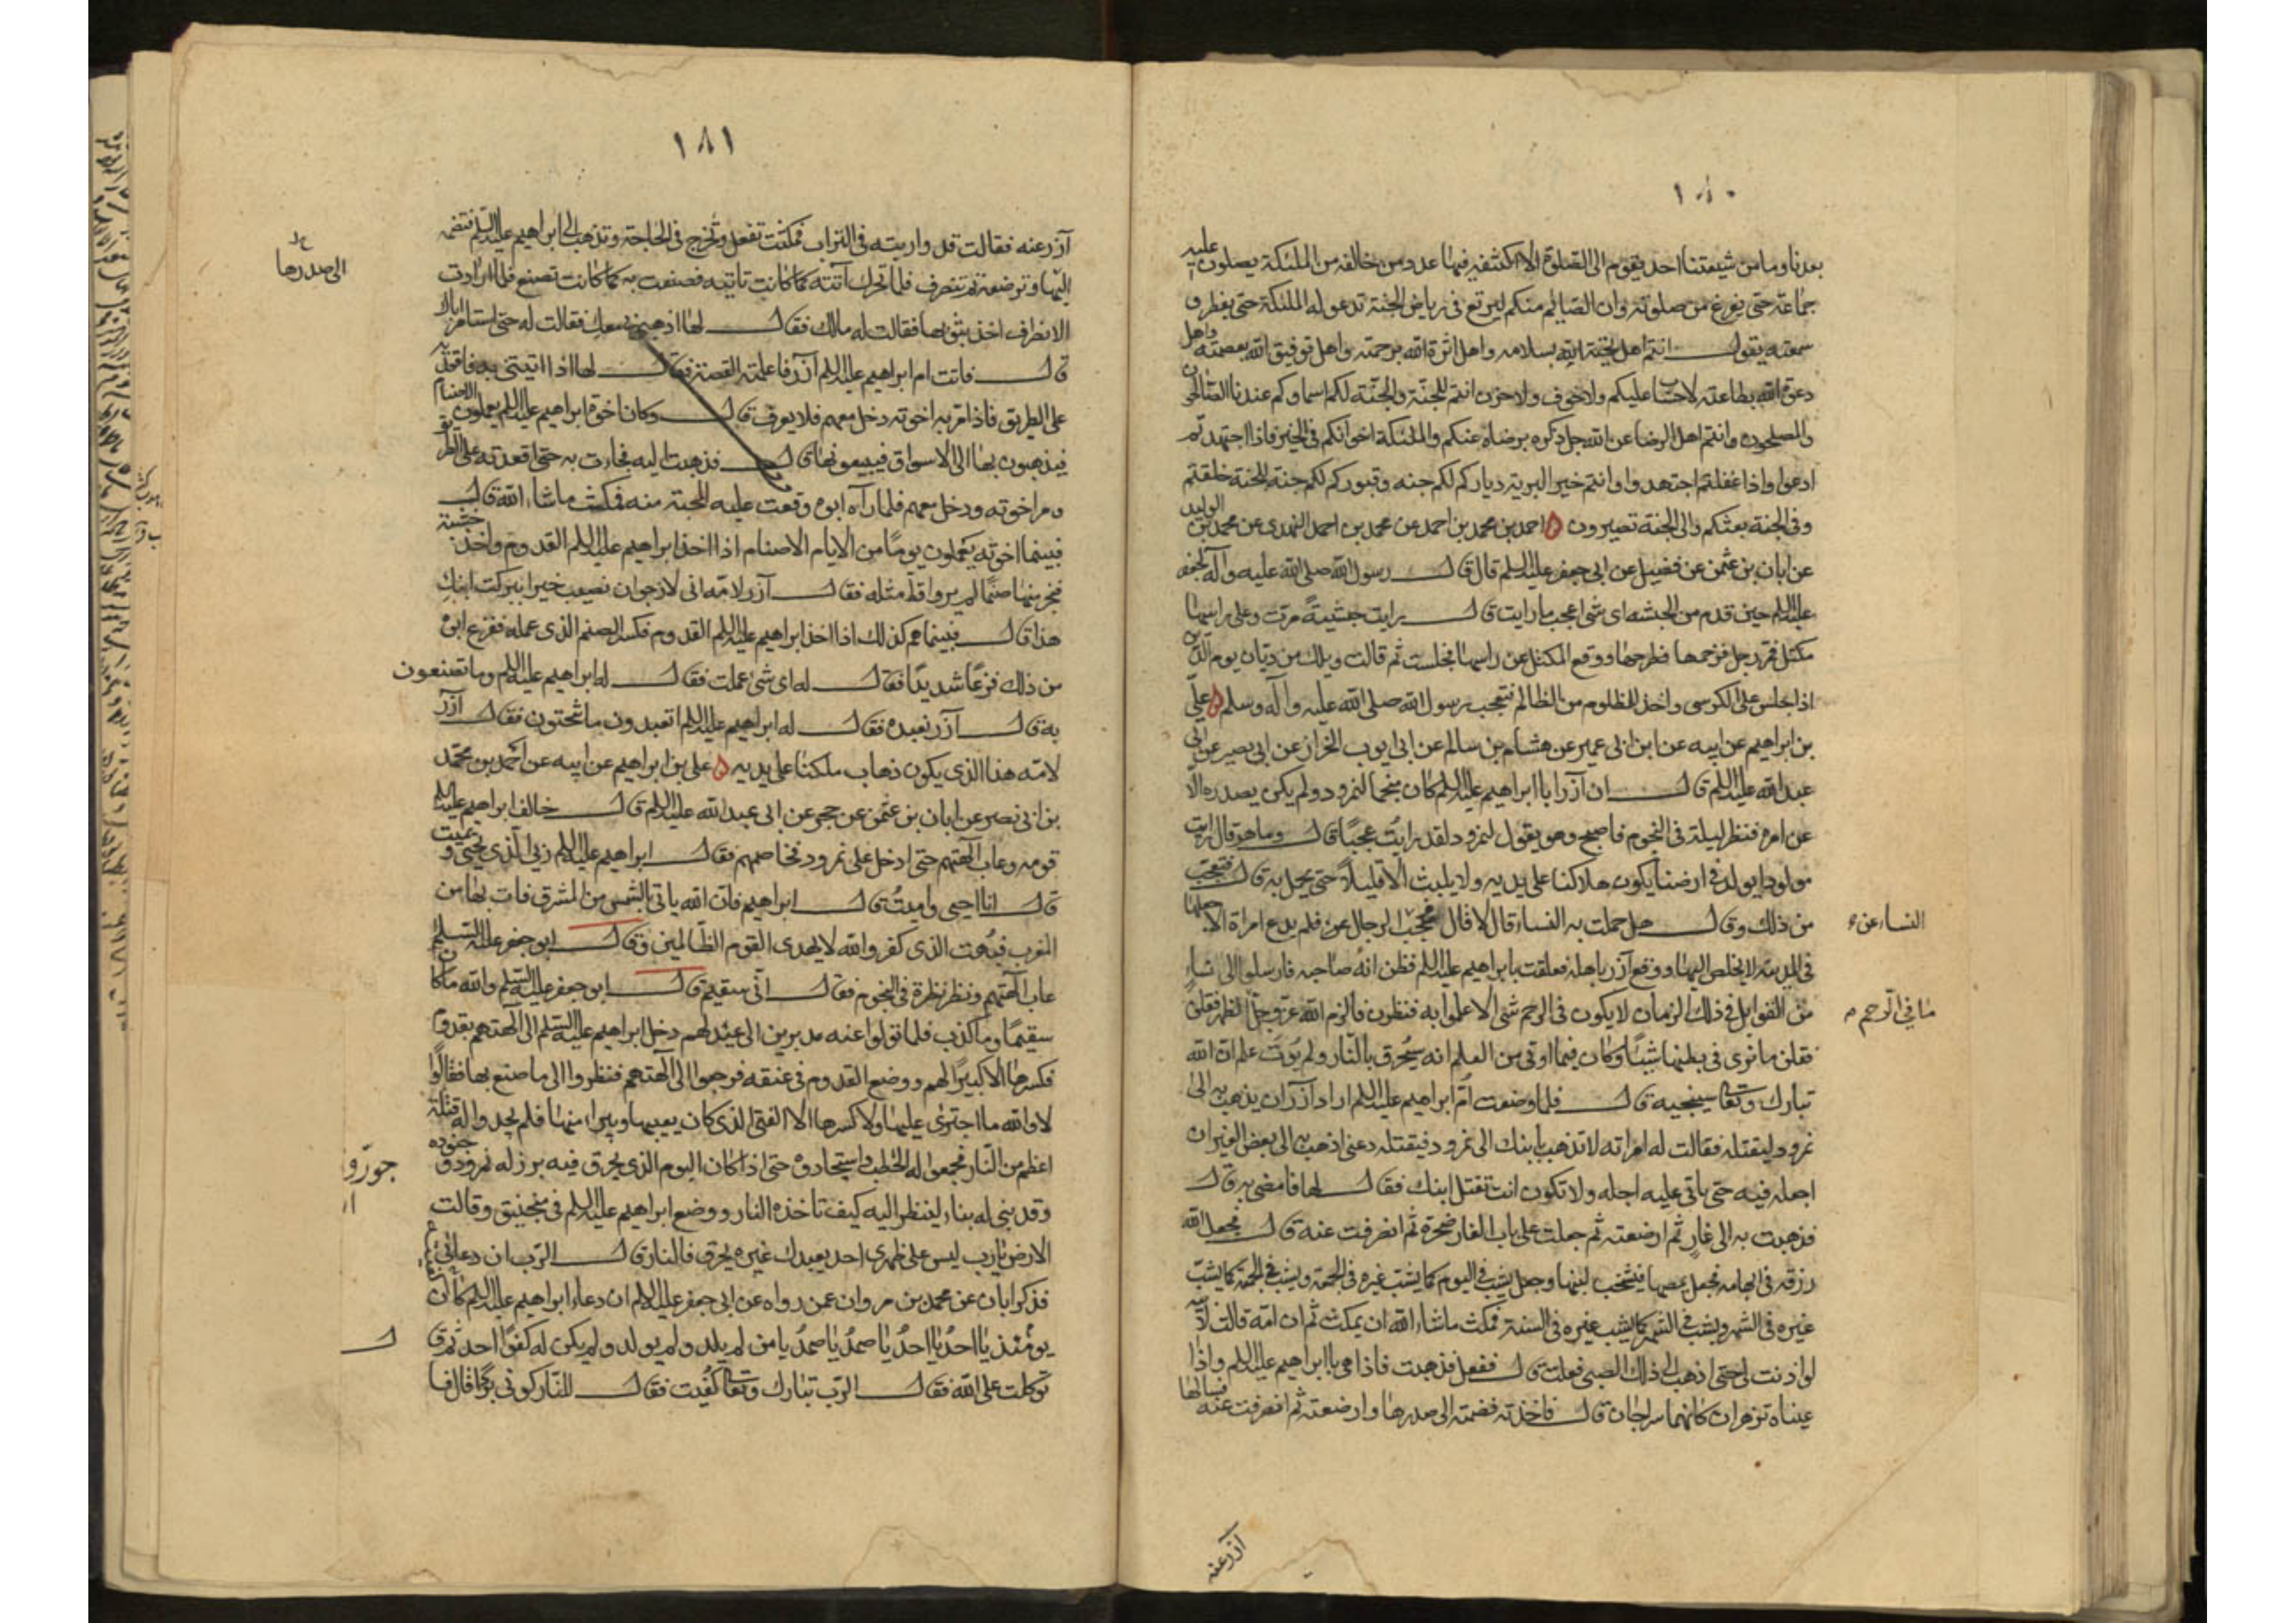 ١٨٠
بعدنا وما من شيعتنا احد يقوم الى الصلوة الا اكتنفته فيها عدد من خالفه من الملئكة يصلون عليه
جماعة حتى يفرغ من صلوته وان الصائم منكم ليرتع فى رياض الجنة تدعو له الملئكة حتى يفطر و
سمعته يقول انتم اهل تحية الله بسلامه واهل اثرة الله برحمته واهل توفيق الله بعصمته واهل
دعوة الله بطاعته لا حساب عليكم ولا خوف ولا حزن انتم للجنة والجنة لكم اسماوكم عندنا الصالحون
والمصلحون وانتم اهل الرضا عن الله جل ذكره برضاه عنكم والملئكة اخوانكم فى الخير فاذا اجتهدتم
ادعوا واذا غفلتم اجتهدوا وانتم خير البرية دياركم لكم جنه وقبوركم لكم جنه للجنة خلقتم
وفى الجنة نعيمكم والى الجنة تصيرون احمد بن محمد بن احمد عن محمد بن احمد النهدى عن محمد بن الوليد
عن ابان بن عثمن عن فضيل عن ابى جعفر عليه السلم قال قال رسول الله صلى الله عليه وآله لجعفر
عليه السلم حين قدم من الحبشه اى شى اعجب ما رايت قال رايت حبشية مرت وعلى راسها
مكتل فمر رجل فزحمها فطرحها ووقع المكتل عن راسها فجلست ثم قالت ويلك من ديان يوم الدين
اذا جلس على الكرسى واخذ للمظلوم من الظالم فتعجب رسول الله صلى الله عليه وآله وسلم على
بن ابراهيم عن ابيه عن ابن ابى عمير عن هشام بن سالم عن ابى ايوب الخزاز عن ابى بصير عن ابى
عبد الله عليه السلم قال ان آزر ابا ابراهيم عليه السلم كان منجما لنمرود ولم يكن يصدر الا
عن امره فنظر ليلة فى النجوم فاصبح وهو يقول لنمرود لقد رايت عجبًا قال وما هو قال رايت
مولودا يولد فى ارضنا يكون هلاكنا على يديه ولا يلبث الا قليلاً حتى يحمل به قال فتعجب
من ذلك وقال هل حملت به النساء قال لا قال فحجب الرجال عن فلم يدع امراة الا جعلها
النساء عن
فى المدينة لا يخلص اليها ووقع آزر باهله فعلقت بابراهيم عليه السلم فظن انه صاحبه فارسل الى نساء
من القوابل فى ذلك الزمان لا يكون فى الرحم شى الا علموا به فنظرن فالزم الله عز وجل الظهر فقلن
ما فى الرحم
فقلن ما نرى فى بطنها شيئًا وكان فيما اوتى من العلم انه سيحرق بالنار ولم يؤت علم ان الله
تبارك وتعالى سينجيه قال فلما وضعت ام ابراهيم عليه السلم اراد آزر ان يذهب به الى
نمرود ليقتله فقالت له امراته لا تذهب بابنك الى نمرود فيقتله دعنى اذهب به الى بعض الغيران
اجعله فيه حتى ياتى عليه اجله ولا تكون انت تقتل ابنك فقال لها فامضى به قال
فذهبت به الى غار ثم ارضعته ثم جعلت على باب الغار صخرة ثم انصرفت عنه قال فجعل الله
رزقه فى ابهامه فجعل يمصها فيشخب لبنها وجعل يشب فى اليوم كما يشب غيره فى الجمعة ويشب فى الجمعة كما يشب
غيره فى الشهر ويشب فى الشهر كما يشب غيره فى السنة فمكث ما شاء الله ان يمكث ثم ان امه قالت لابيه
لو اذنت لى حتى اذهب الى ذلك الصبى فعلت قال ففعل فذهبت فاذا هى بابراهيم عليه السلم واذا
عيناه تزهران كانهما سراجان قال فاخذته فضمته الى صدرها وارضعته ثم انصرفت عنه فسالها
آزر عنه
١٨١
آزر عنه فقالت قد واريته فى التراب فمكثت تفعل وتخرج فى الحاجة وتذهب الى ابراهيم عليه السلم فتضمه
الى صدرها
اليها وترضعه ثم تنصرف فلما تحرك اتته كما كانت تاتيه فصنعت به كما كانت تصنع فلما ارادت
الانصراف اخذ بثوبها فقالت له مالك فقال لها اذهبى بى معك فقالت له حتى استامر اباك
قال فاتت ام ابراهيم عليه السلم آزر فاعلمته القصة فقال لها اذا اتيتنى به فاقعديه
على الطريق فاذا مر به اخوته دخل معهم فلا يعرف قال وكان اخوة ابراهيم عليه السلم يعملون الاصنام
فيذهبون بها الى الاسواق فيبيعونها قال فذهبت اليه فجاءت به حتى اقعدته على الطريق
ومر اخوته ودخل معهم فلما رآه ابوه وقعت عليه المحبة منه فمكث ما شاء الله قال
فبينما اخوته يعملون يومًا من الايام الاصنام اذا اخذ ابراهيم عليه السلم القدوم واخذ خشبة
فنجر منها صنمًا لم يروا قط مثله فقال آزر لامه انى لارجوان نصيب خيرا ببركت ابنك
هذا قال فبينما هم كذلك اذا اخذ ابراهيم عليه السلم القدوم فكسر الصنم الذى عمله ففزع ابوه
من ذلك فزعًا شديدًا فقال له اى شئ عملت فقال له ابراهيم عليه السلم وما تصنعون
به قال آزر نعبده فقال له ابراهيم عليه السلم اتعبدون ما تنحتون فقال آزر
لامه هذا الذى يكون ذهاب ملكنا على يديه على بن ابراهيم عن ابيه عن احمد بن محمد
بن ابى نصر عن ابان بن عثمن عن حجر عن ابى عبد الله عليه السلم قال خالف ابراهيم عليه السلم
قومه وعاب آلهتهم حتى ادخل على نمرود فخاصمهم فقال ابراهيم عليه السلم ربى الذى يحيى ويميت
قال انا احيى واميت قال ابراهيم فان الله ياتى بالشمس من المشرق فات بها من
المغرب فبهت الذى كفر والله لا يهدى القوم الظالمين وقال ابو جعفر عليه السلم
عاب آلهتهم ونظر نظرة فى النجوم فقال انى سقيم قال ابو جعفر عليه السلم والله ما كان
سقيمًا وما كذب فلما تولوا عنه مدبرين الى عيد لهم دخل ابراهيم عليه السلم الى آلهتهم بقدوم
فكسرها الا كبيرًا لهم ووضع القدوم فى عنقه فرجعوا الى آلهتهم فنظروا الى ما صنع بها فقالوا
لا والله ما اجترى عليها ولا كسرها الا الفتى الذى كان يعيبها ويبرا منها فلم يجدوا له قتلة
اعظم من النار فجمعوا له الحطب واستجادوه حتى اذا كان اليوم الذى يحرق فيه برز له نمرود وجنوده
وقد بنى له بناء لينظر اليه كيف تاخذه النار ووضع ابراهيم عليه السلم فى منجنيق وقالت
الارض يا رب ليس على ظهرى احد يعبدك غيره يحرق فالنار قال الرب ان دعانى
فذكر ابان عن محمد بن مروان عمن رواه عن ابى جعفر عليه السلم ان دعاء ابراهيم عليه السلم كان
يومئذ يا احدُ يا احدُ يا صمدُ يا صمدُ يا من لم يلد ولم يولد ولم يكن له كفوًا احد ثم قال
توكلت على الله فقال الرب تبارك وتعالى كفيت فقال للنار كونى بردًا قال فا